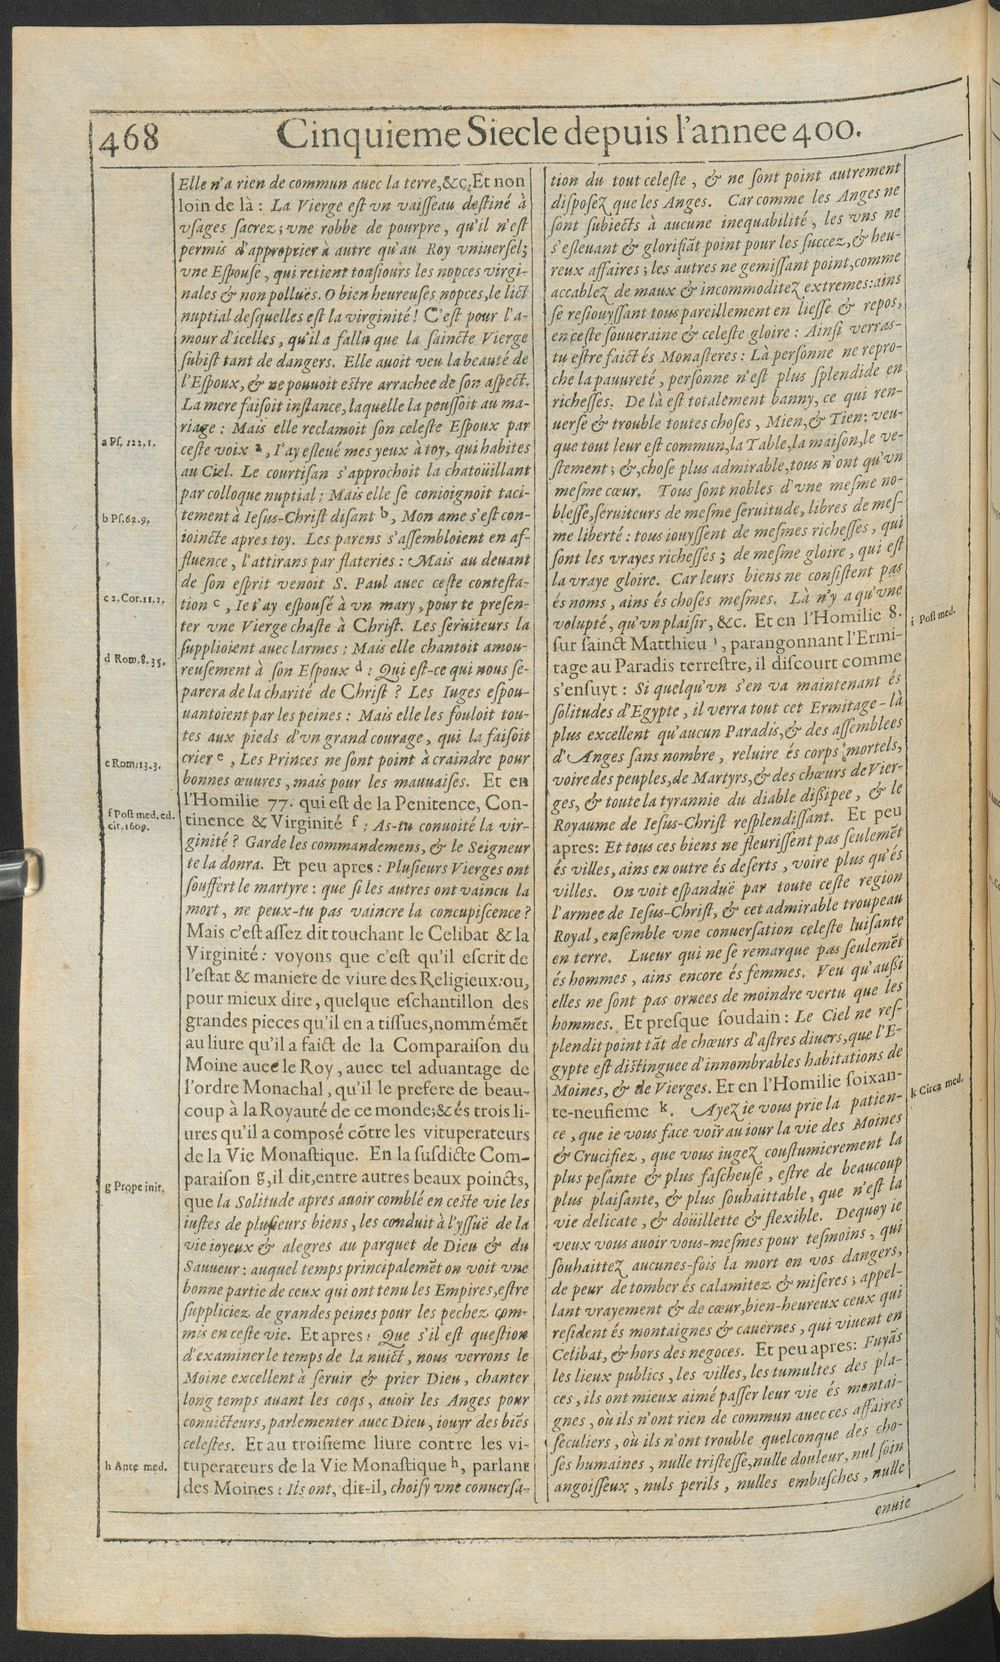 468 Cinquieme Siecle depuis l'annee 400.
Elle n'a rien de commun auec la terre, &c. Et non
loin de là : La Vierge est vn vaisseau destiné à
vsages sacrez ; vne robbe de pourpre, qu'il n'est
permis d'approprier à autre qu'au Roy vniuersel;
vne Espouse, qui retient tousiours les nopces virgi-
nales & non polluës. O bien heureuses nopces, le lict
nuptial desquelles est la virginité ! C'est pour l'a-
mour d'icelles, qu'il a fallu que la saincte Vierge
subist tant de dangers. Elle auoit veu la beauté de
l'Espoux, & ne pouuoit estre arrachee de son aspect.
La mere faisoit instance, laquelle la poussoit au ma-
riage : Mais elle reclamoit son celeste Espoux par
a Ps. 122.1.
ceste voix a, I'ay esleué mes yeux à toy, qui habites
au Ciel. Le courtisan s'approchoit la chatoüillant
par colloque nuptial ; Mais elle se conioignoit taci-
b Ps. 62.9.
tement à Iesus-Christ disant b, Mon ame s'est con-
ioincte apres toy. Les parens s'assembloient en af-
fluence, l'attirans par flateries : Mais au deuant
de son esprit venoit S. Paul auec ceste contesta-
c 2. Cor. 11. 2.
tion c, Ie t'ay espousé à vn mary, pour te presen-
ter vne Vierge chaste à Christ. Les seruiteurs la
supplioient auec larmes ; Mais elle chantoit amou-
d Rom. 8. 35.
reusement à son Espoux d : Qui est-ce qui nous se-
parera de la charité de Christ ? Les Iuges espou-
uantoient par les peines : Mais elle les fouloit tou-
tes aux pieds d'vn grand courage, qui la faisoit
e Rom. 13. 3.
crier e, Les Princes ne sont point à craindre pour
bonnes œuures, mais pour les mauuaises. Et en
l'Homilie 77. qui est de la Penitence, Con-
f Post med. ed.
cit. 1609.
tinence & Virginité f : As-tu conuoité la vir-
ginité ? Garde les commandemens, & le Seigneur
te la donra. Et peu apres : Plusieurs Vierges ont
souffert le martyre : que si les autres ont vaincu la
mort, ne peux-tu pas vaincre la concupiscence ?
Mais c'est assez dit touchant le Celibat & la
Virginité : voyons que c'est qu'il escrit de
l'estat & maniere de viure des Religieux: ou,
pour mieux dire, quelque eschantillon des
grandes pieces qu'il en a tissues, nommémẽt
au liure qu'il a faict de la Comparaison du
Moine auec le Roy, auec tel aduantage de
l'ordre Monachal, qu'il le prefere de beau-
coup à la Royauté de ce monde; & és trois li-
ures qu'il a composé cõtre les vituperateurs
de la Vie Monastique. En la susdicte Com-
g Prope init.
paraison g, il dit, entre autres beaux poincts,
que la Solitude apres auoir comblé en ceste vie les
iustes de plusieurs biens, les conduit à l'yssuë de la
vie ioyeux & alegres au parquet de Dieu & du
Sauueur : auquel temps principalemẽt on voit vne
bonne partie de ceux qui ont tenu les Empires, estre
suppliciez de grandes peines pour les pechez com-
mis en ceste vie. Et apres : Que s'il est question
d'examiner le temps de la nuict, nous verrons le
Moine excellent à seruir & prier Dieu, chanter
long temps auant les coqs, auoir les Anges pour
conuicteurs, parlementer auec Dieu, iouyr des biẽs
celestes. Et au troisieme liure contre les vi-
h Ante med.
tuperateurs de la Vie Monastique h, parlant
des Moines : Ils ont, dit-il, choisy vne conuersa-
tion du tout celeste, & ne sont point autrement
disposez que les Anges. Car comme les Anges ne
sont subiects à aucune inequabilité, les vns ne
s'esleuant & glorifiãt point pour les succez, & heu-
reux affaires ; les autres ne gemissant point, comme
accablez de maux & incommoditez extremes: ains
se resiouyssant tous pareillement en liesse & repos,
en ceste souueraine & celeste gloire : Ainsi verras-
tu estre faict és Monasteres : Là personne ne repro-
che la pauureté, personne n'est plus splendide en
richesses. De là est totalement banny, ce qui ren-
uerse & trouble toutes choses, Mien, & Tien: veu-
que tout leur est commun, la Table, la maison, le ve-
stement ; &, chose plus admirable, tous n'ont qu'vn
mesme cœur. Tous sont nobles d'vne mesme no-
blesse, seruiteurs de mesme seruitude, libres de mes-
me liberté : tous iouyssent de mesmes richesses, qui
sont les vrayes richesses ; de mesme gloire, qui est
la vraye gloire. Car leurs biens ne consistent pas
és noms, ains és choses mesmes. Là n'y a qu'vne
volupté, qu'vn plaisir, &c. Et en l'Homilie 8.
i Post med.
sur sainct Matthieu i, parangonnant l'Ermi-
tage au Paradis terrestre, il discourt comme
s'ensuyt : Si quelqu'vn s'en va maintenant és
solitudes d'Egypte, il verra tout cet Ermitage-là
plus excellent qu'aucun Paradis, & des assemblees
d'Anges sans nombre, reluire és corps mortels,
voire des peuples, de Martyrs, & des chœurs de Vier-
ges, & toute la tyrannie du diable dissipee, & le
Royaume de Iesus-Christ resplendissant. Et peu
apres: Et tous ces biens ne fleurissent pas seulemẽt
és villes, ains en outre és deserts, voire plus qu'és
villes. On voit espanduë par toute ceste region
l'armee de Iesus-Christ, & cet admirable troupeau
Royal, ensemble vne conuersation celeste luisante
en terre. Lueur qui ne se remarque pas seulemẽt
és hommes, ains encore és femmes. Veu qu'aussi
elles ne sont pas ornees de moindre vertu que les
hommes. Et presque soudain : Le Ciel ne res-
plendit point tãt de chœurs d'astres diuers, que l'E-
gypte est distinguee d'innombrables habitations de
Moines, & de Vierges. Et en l'Homilie soixan-
k Circa med.
te-neufieme k. Ayez ie vous prie la patien-
ce, que ie vous face voir au iour la vie des Moines
& Crucifiez, que vous iugez coustumierement la
plus pesante & plus fascheuse, estre de beaucoup
plus plaisante, & plus souhaittable, que n'est la
vie delicate, & doüillette & flexible. Dequoy ie
veux vous auoir vous-mesmes pour tesmoins, qui
souhaittez aucunes-fois la mort en vos dangers,
de peur de tomber és calamitez & miseres ; appel-
lant vrayement & de cœur, bien-heureux ceux qui
resident és montaignes & cauernes, qui viuent en
Celibat, & hors des negoces. Et peu apres: Fuyãs
les lieux publics, les villes, les tumultes des pla-
ces, ils ont mieux aimé passer leur vie és montai-
gnes, où ils n'ont rien de commun auec ces affaires
seculiers, où ils n'ont trouble quelconque des cho-
ses humaines, nulle tristesse, nulle douleur, nul soin
angoisseux, nuls perils, nulles embusches, nulle
enuie